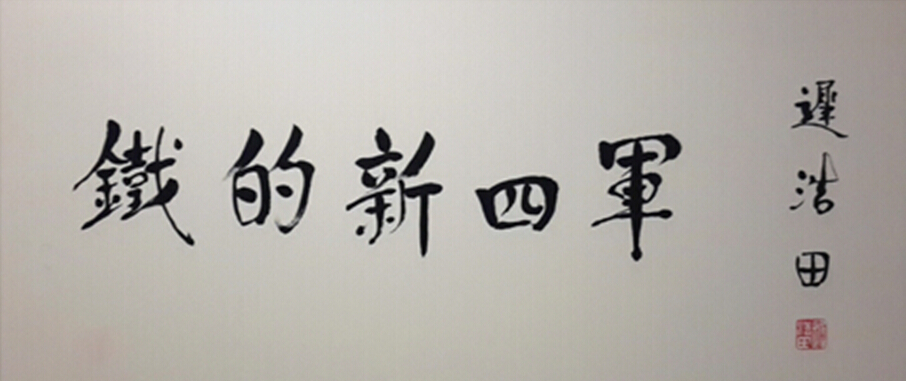 鐵的新四軍
遲浩田